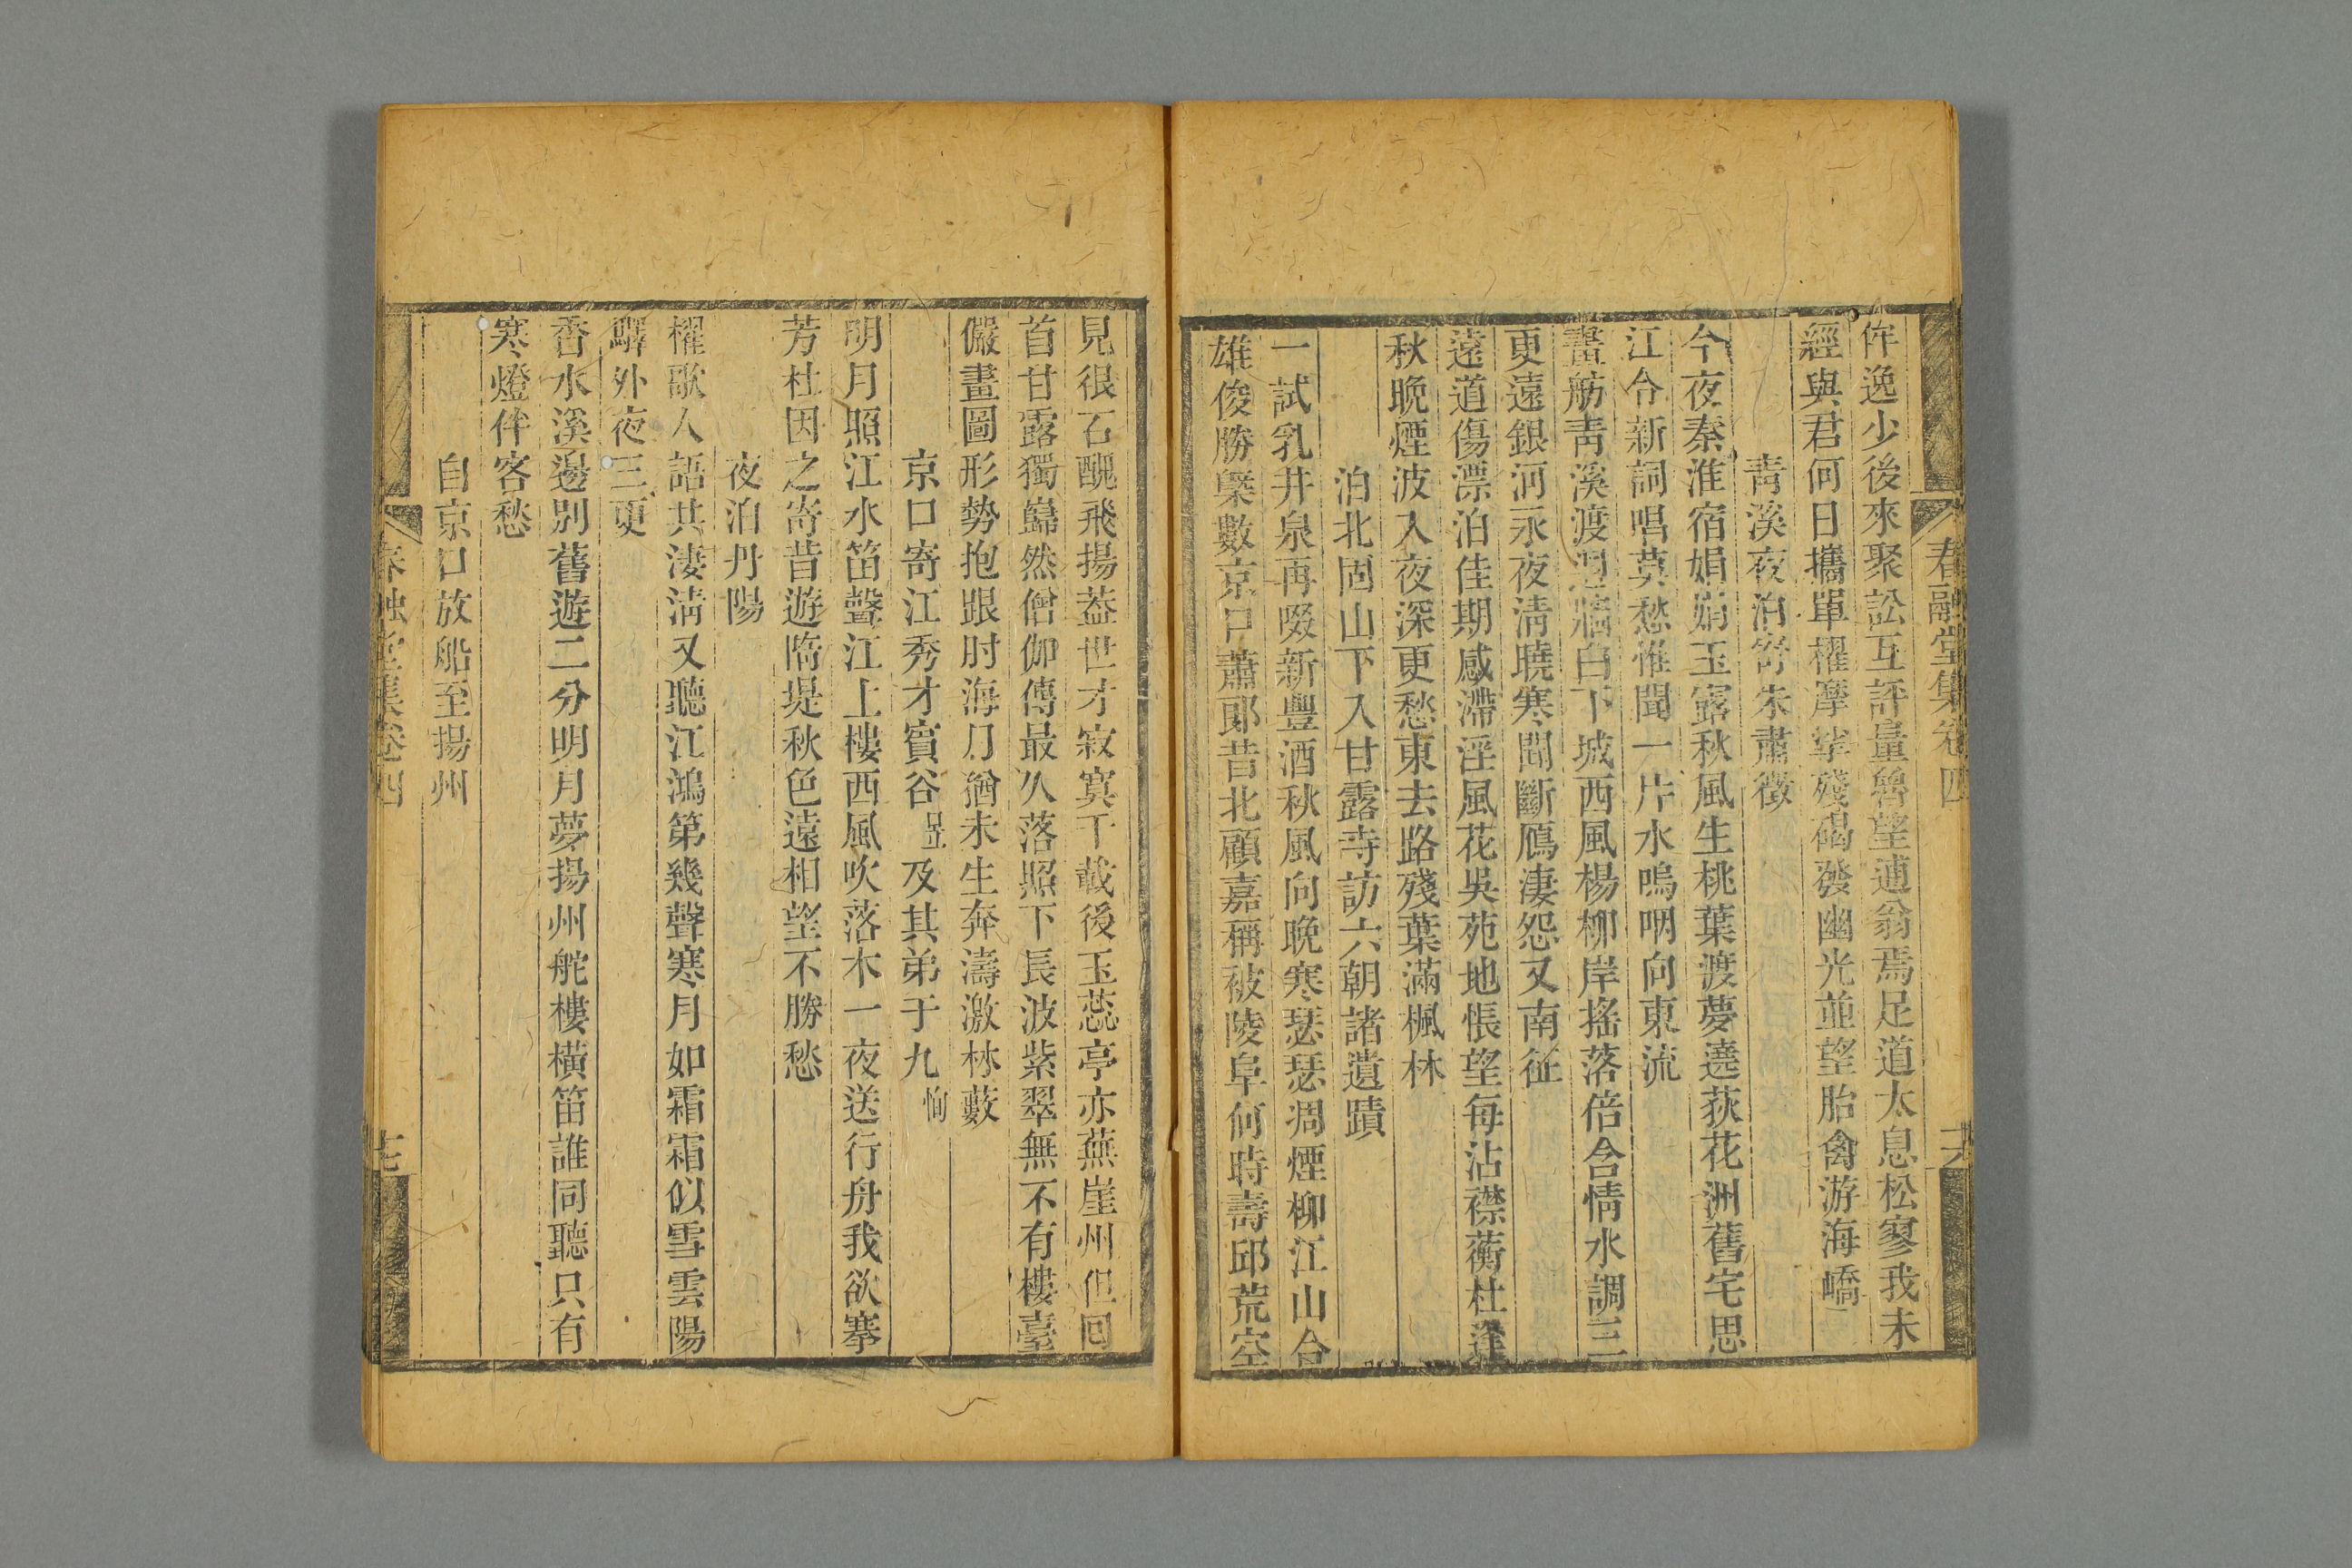 春融堂集卷四
六
侔逸少後來聚訟互評量魯望逋翁焉足道太息松寥我未
經與君何日攜單櫂摩挲殘碣發幽光並望胎禽游海嶠
青溪夜泊寄朱肅徵
今夜秦淮宿娟娟玉露秋風生桃葉渡夢遶荻花洲舊宅思
江令新詞唱莫愁惟聞一片水嗚咽向東流
畫舫青溪渡牆白下城西風楊柳岸搖落倍含情水調三
更遠銀河永夜清曉寒聞斷鴈淒怨又南征
遠道傷漂泊佳期感滯淫風花吳苑地悵望每沾襟蘅杜逢
秋晚煙波入夜深更愁東去路殘葉滿楓林
泊北固山下入甘露寺訪六朝諸遺蹟
一試乳井泉再啜新豐酒秋風向晚寒瑟瑟凋煙柳江山合
雄俊勝槩數京口蕭郎昔北顧嘉稱被陵阜何時壽邱荒空
見很石醜飛揚葢世才寂寞千載後玉蕊亭亦蕪崖州但回
首甘露獨巋然僧伽傳最久落照下長波紫翠無不有樓臺
儼畫圖形勢抱跟肘海月猶未生奔濤激林藪
京口寄江秀才賓谷昱及其弟于九恂
明月照江水笛聲江上樓西風吹落木一夜送行舟我欲搴
芳杜因之寄昔遊隋堤秋色遠相望不勝愁
夜泊丹陽
櫂歌人語共淒淸又聽江鴻第幾聲寒月如霜霜似雪雲陽
驛外夜三更
香水溪邊別舊遊二分明月夢揚州舵樓橫笛誰同聽只有
寒燈伴客愁
自京口放船至揚州
春融堂集卷四
七